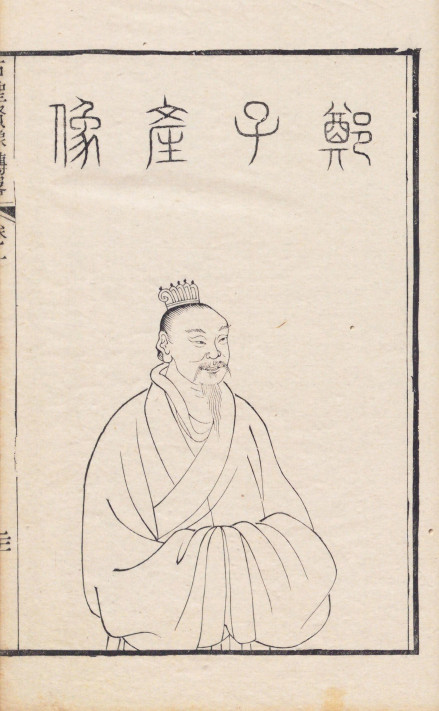 鄭子產像
古聖賢像傳略
卷一